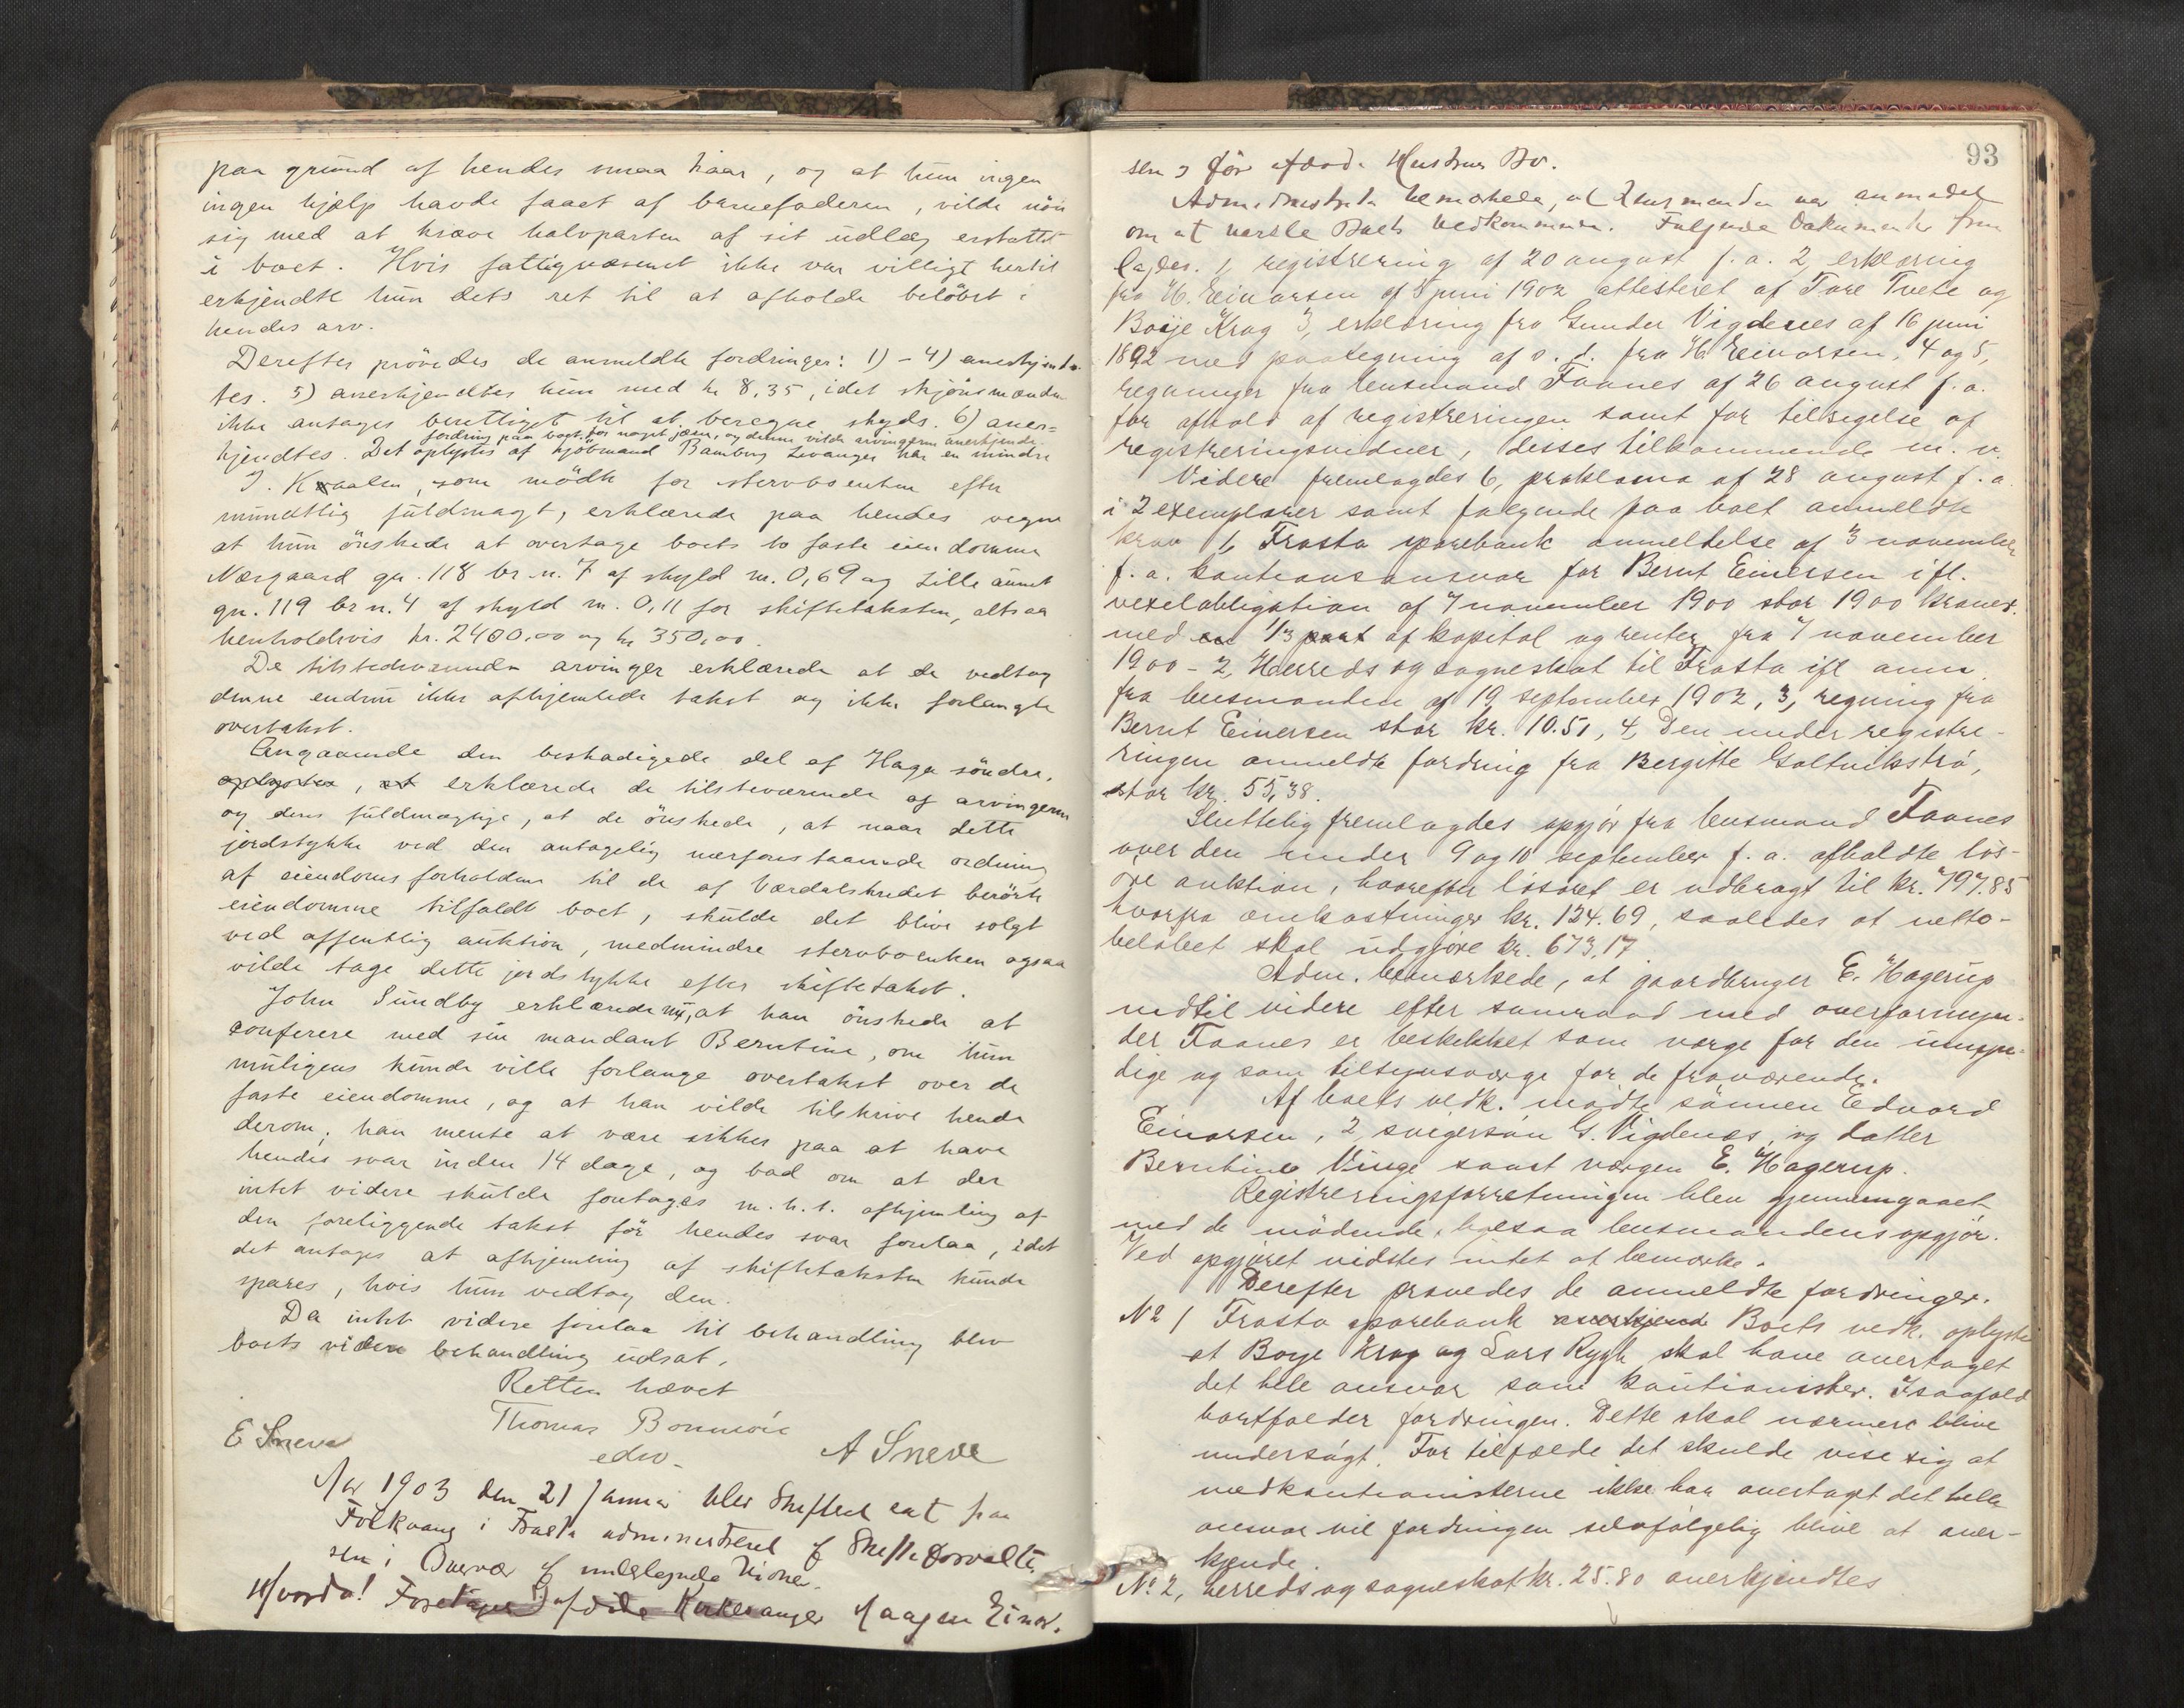 paa grund af hendes smaa kaar, og at hun ingen
ingen hjælp havde faaet af barnefaderen, vilde nöie
sig med at kræve halvparten af sit udlæg erstattet
i boet. Hvis fattigvæsenet ikke var villigt hertil
erkjendte hun dets ret til at afholde belöbet i
hendes arv.
Derefter prövedes de anmeldte fordringer: 1) - 4) anerkjendtes
tes. 5) anerkjendtes kun med kr 8,35, idet skjönsmændene
ikke antages berettiget til at beregne skyds. 6) aner=
fordring paa boet for noget jern, og denne vilde arvingerne anerkjende.
kjendtes. Det oplystes at kjöbmand Bamberg Levanger har en mindre
J. Kvaalen, som mödte for stervboenken efter
mundtlig fuldmagt, erklærede paa hendes vegne
at hun önskede at overtage boets to faste eiendomme
Norgaard gn. 118 br.n. 7 af skyld m. 0,69 og Lilleaunet
gn. 119 br.n. 4 af skyld m. 0,11 for skiftetaksten, altsaa
henholdsvis kr. 2400,00 og kr 350,00.
De tilstedeværende arvinger erklærede at de vedtog
denne endnu ikke afhjemlede takst og ikke forlangte
overtakst.
Angaaende den beskadigede del af Haga söndre,
oplystes, at erklærede de tilsteværende af arvingerne
og deres fuldmægtige, at de önskede, at naar dette
jordstykke ved den antagelig nærforestaaende ordning
af eiendomsforholdene til de af Værdalskredet berörte
eiendomme tilfaldt boet, skulde det blive solgt
ved offentlig auktion, medmindre stervboenken ogsaa
vilde tage dette jordstykke efter skiftetakst.
John Sundby erklærede nu, at han önskede at
conferere med sin mandant Berntine, om hun
muligens kunde ville forlange overtakst over de
faste eiendomme, og at han vilde tilskrive hende
derom; han mente at være sikker paa at have
hendes svar inden 14 dage, og bad om at der
intet videre skulde foretages m.h.t. afhjemling af
den foreliggende takst för hendes svar forelaa, idet
det antages at afhjemling af skiftetaksten kunde
spares, hvis hun vedtog den.
Da intet videre forelaa til behandling blev
boets videre behandling udsat.
Retten hævet
Thomas Bonnevie
edsv.
E Sneve
A Sneve
Aar 1903 den 21 Januar blev Skifteret sat paa
Folkvang i Frosta administreret af Skifteforvalte
ren i Overvær af undertegnede Vidner.
Hvorda! Foretages Kirkesanger Haagen Einar.
93
sen og för afdöde Hustrues Bo.
Administrator bemærkede, at Lensmanden var anmodet
om at varsle Boets Vedkommende. Fölgende Dokumenter frem
lagdes. 1, registrering af 20 august f.a. 2, erklæring
fra H. Einarsen af 5 juni 1902 attesteret af Tore Tvete og
Boije Krag 3, erklæring fra Gunder Vigdenes af 16 juni
1892 med paategning af s.d. fra H Einarsen, 4 og 5,
regninger fra lensmand Faanes af 26 august f.a.
for afhold af registreringen samt for tilsigelse af
registreringsvidner, disses tilkommende m.v.
Videre fremlagdes 6, proklama af 28 august f.a.
i 2 exemplarer samt følgende paa boet anmeldte
krav 1, Frosta sparebank anmeldelse af 3 november
f.a. kautionsansvar for Bernt Einersen ifl.
vexelobligation af 7 november 1900 stor 1900 kroner.
med en 1/3 part af kapital og renter fra 7 november
1900 - 2, Herreds og sogneskat til Frosta ifl anm.
fra lensmanden af 19 september 1902, 3, regning fra
Bernt Einersen stor kr. 10.51, 4, Den under registre-
ringen anmeldte fordring fra Bergitte Galtvikströ,
stor kr. 55,38.
Sluttelig fremlagdes opgjör fra lensmand Faanes
over den under 9 og 10 september f.a. afholdte lös-
öre auktion, hvorefter lösöret er udbragt til kr. 797.85
hvorfra omkostninger kr. 124.69, saaledes at netto-
belöbet skal udgjöre kr. 673,17
Adm. bemærkede, at gaardbruger E. Hagerup
indtil videre efter samraad med overformyn-
der Faanes er beskikket som værge for den umyn-
dige og som tilsynsværge for de fraværende.
Af boets vedk. mödte sönnen Edvard
Einarsen, 2 svigersön G. Vigdenes, og datter
Berntine Vinge samt værgen E. Hagerup.
Registreringsforretningen blev gjennemgaaet
med de mödende, ligesaa lensmandens opgjör.
Ved opgjöret vidstes intet at bemærke.
Derefter prøvedes de anmeldte fordringer.
No 1 Frosta sparebank anerkjend Boets vedk. oplyste
at Boye Krag og Lars Rygh skal have overtaget
det hele ansvar som kautionister. Isaafald
bortfalder fordringen. Dette skal nærmere blive
undersögt. For tilfælde det skulde vise sig at
medkautionisterne ikke har overtaget det hele
ansvar vil fordringen selvfölgelig blive at aner-
kjende.
No 2, herreds og sogneskat kr. 25.80 anerkjendtes